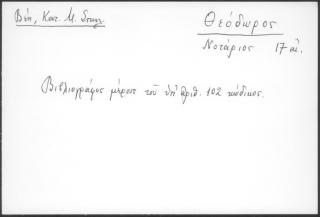 Βέη, Κατ. Μ. Σταγ.
Θεόδωρος
Νοτάριος 17 αἰ.
Βιβλιογράφος μέρους τοῦ ὑπ' ἀριθ. 102 κώδικος.